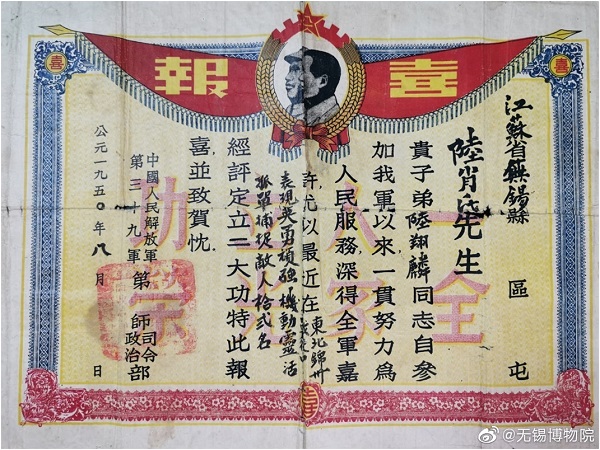 喜報
喜
喜
江蘇省無錫縣 區 屯
陸肖 先生
貴子弟陸翔麟同志自參
加我軍以來一貫努力為
人民服務,深得全軍嘉
許尤以最近在東北錦州
表現英勇頑強機動靈活
孤單捕捉敵人拾弍名
經評定立二大功特此報
喜,並致賀忱。
中國人民解放軍
第三十九軍 第 師 司令 政治 部
公元一九五〇年八月 日
一人 功
全家 榮
@无锡博物院